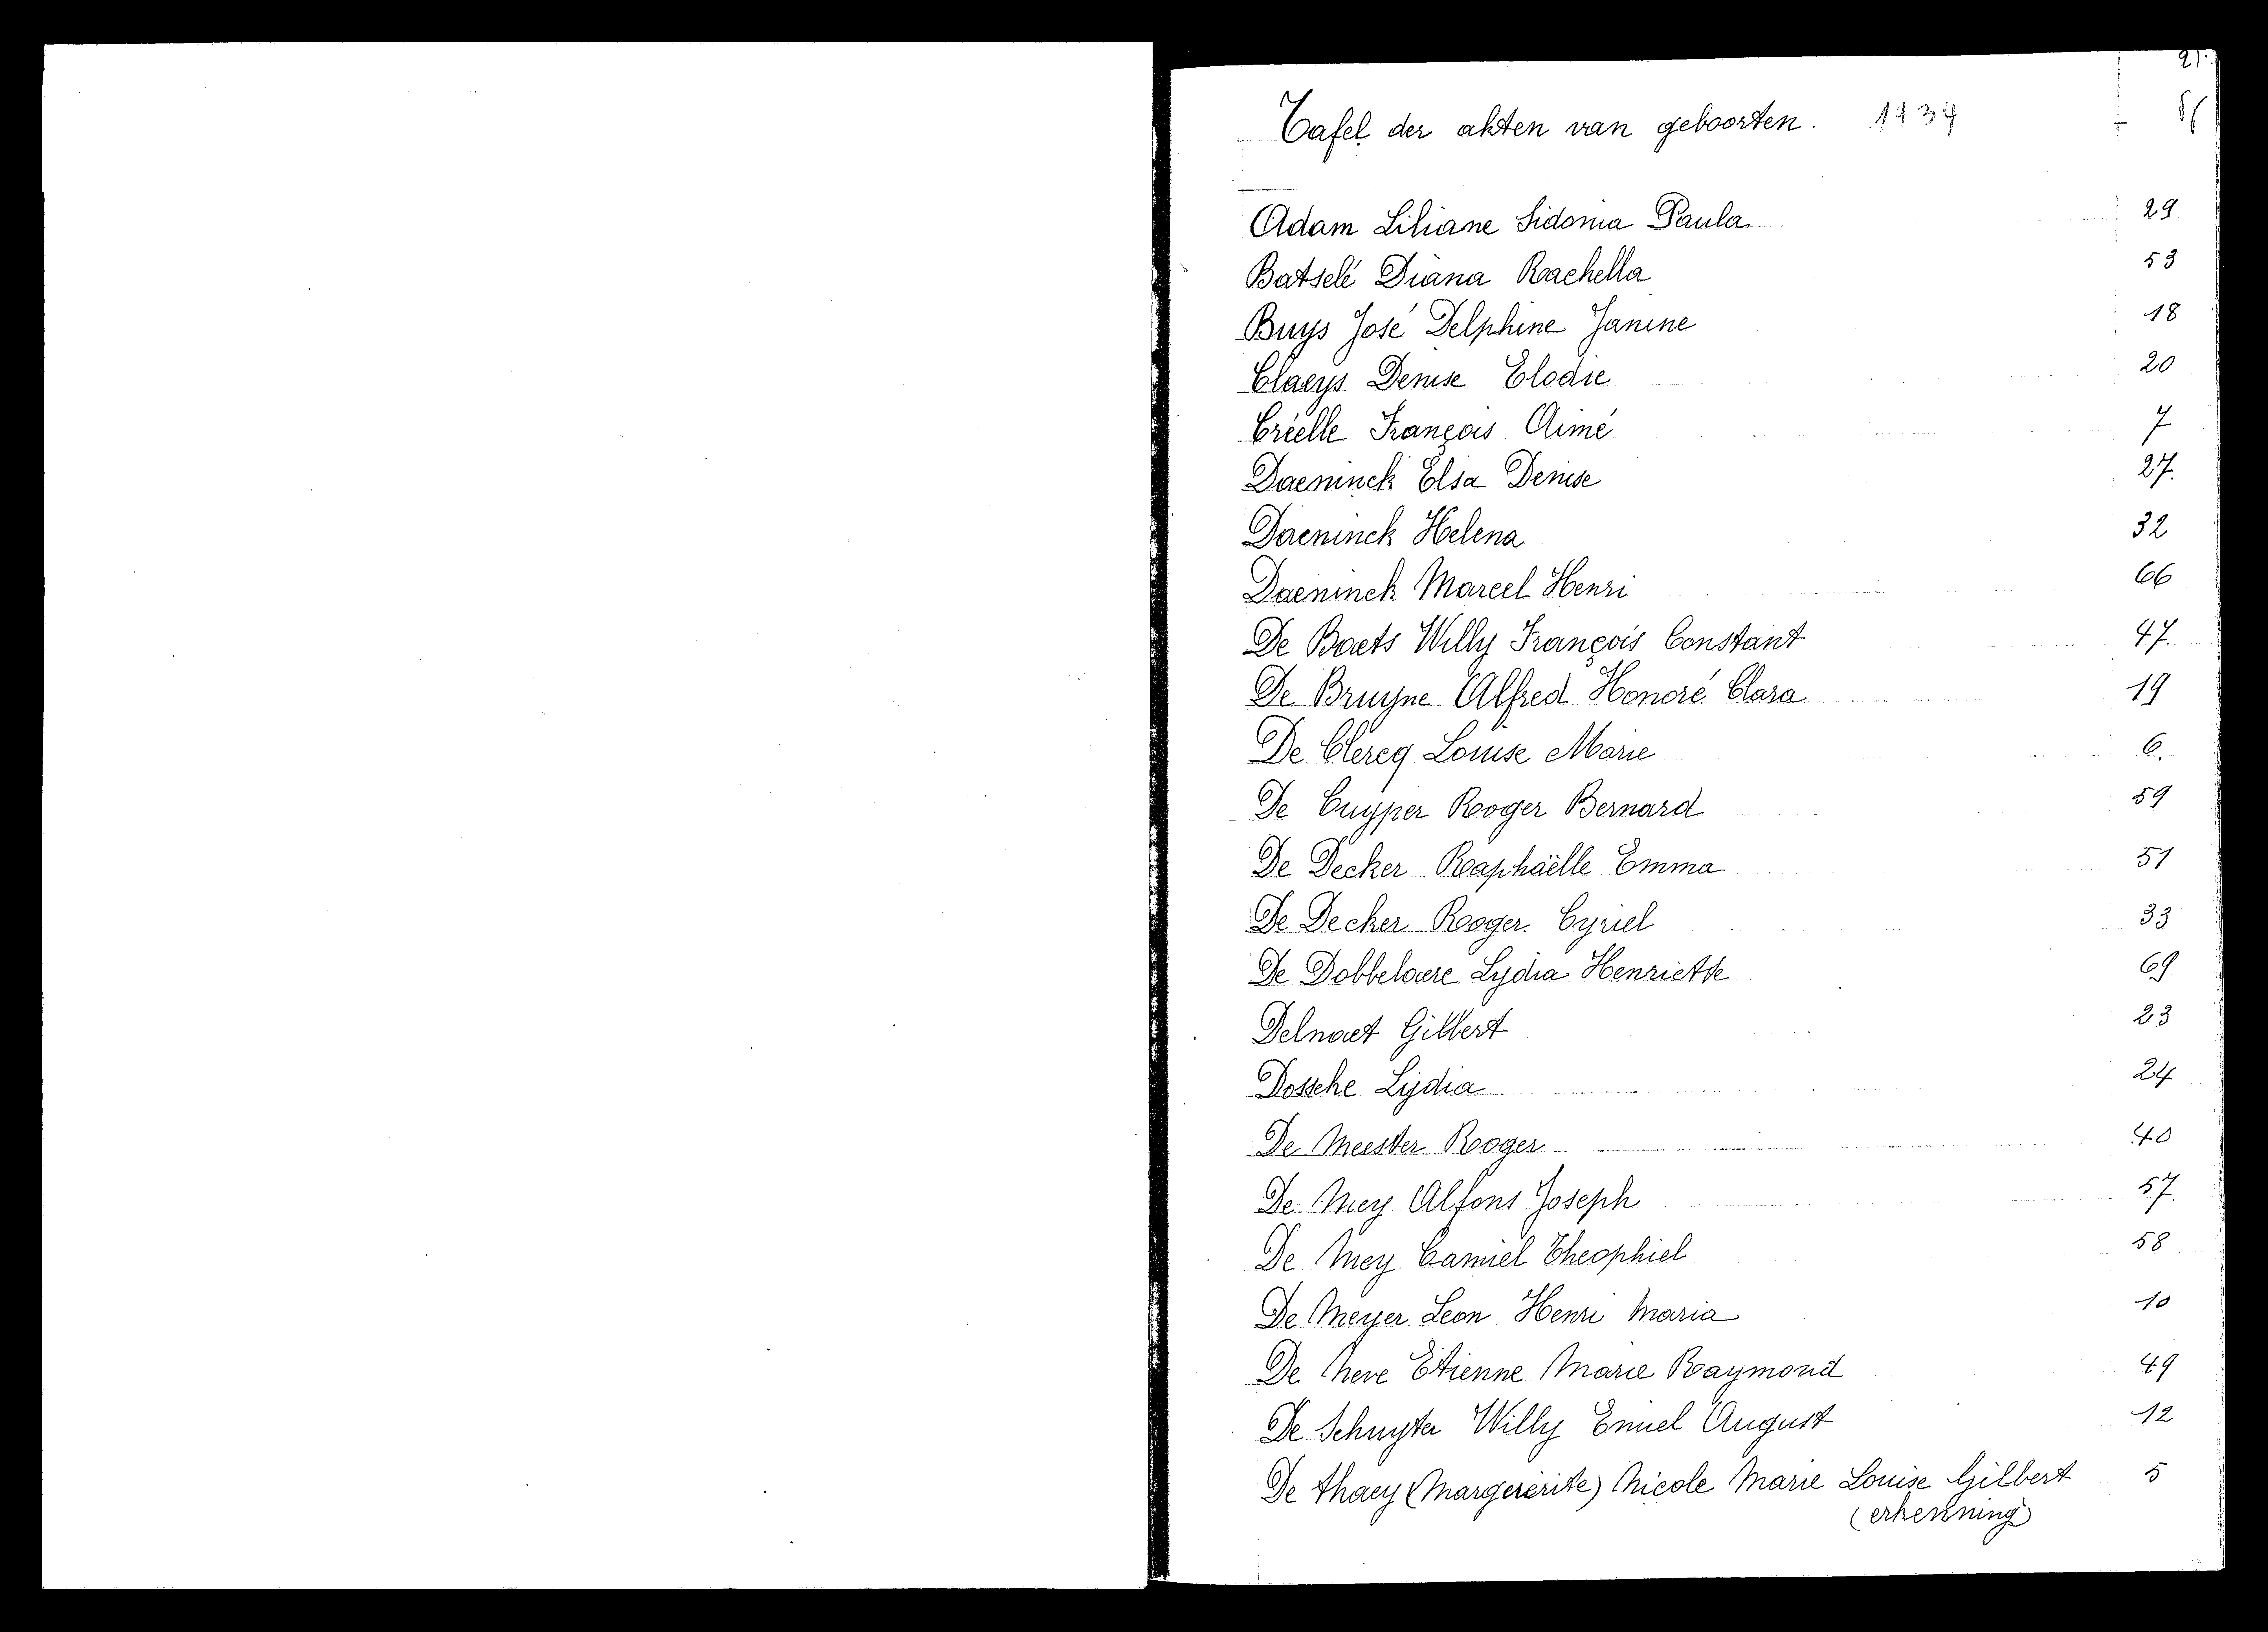 21.
Tafel der akten van geboorten. 1934
Adam Liliane Sidonia Paula 29
Batselé Diana Rachella 53
Buys José Delphine Janine 18
Claeys Denise Elodie 20
Criëlle François Aimé 7
Daeninck Elsa Denise 27.
Daeninck Helena 32
Daeninck Marcel Henri 66
De Baets Willy François Constant 47.
De Bruyne Alfred Honoré Clara 19
De Clercq Louise Marie 6.
De Cuyper Roger Bernard 59
De Decker Raphaëlle Emma 51
De Decker Roger Cyriel 33
De Dobbelaere Lydia Henriette 69
Delnaet Gilbert 23
Dossche Lydia 24
De Meester Roger 40
De Mey Alfons Joseph 57.
De Mey Camiel Theophiel 58
De Meyer Leon Henri Maria 10
De Neve Etienne Marie Raymond 49
De Schuyter Willy Emiel August 12
De thaey (Margererite) Nicole Marie Louise Gilbert 5
(erkenning)